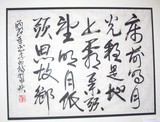 床前明月
光疑是地
上霜举頭
望明月低
頭思故鄉